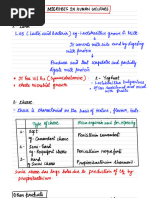 MICROBES IN HUMAN WELFARE
LAB (Lactic acid bacteria) eg- Lactobacillus grows in Milk
It converts milk into curd by digesting
milk protein
Produces acid that coagulate and partially
digest milk protein
→ It ↑es vit B12 (cyanocobalamine)
+ check microbial growth
2 - Yoghurt
Lactobacillus bulgaricus
2. Cheese
Cheese is characteristic on the basis of texture, flavour, taste
Type of cheese
Micro-organism used for specificity
1 - Soft
Camembert cheese
Penicillium camemberti
2 - Semi-hard
Roquefort cheese
Penicillium roqueforti
3 - Hard
Swiss cheese
Propionibacterium sharmanii
Swiss cheese has large holes due to production of CO2 by
propionibacterium
Other products